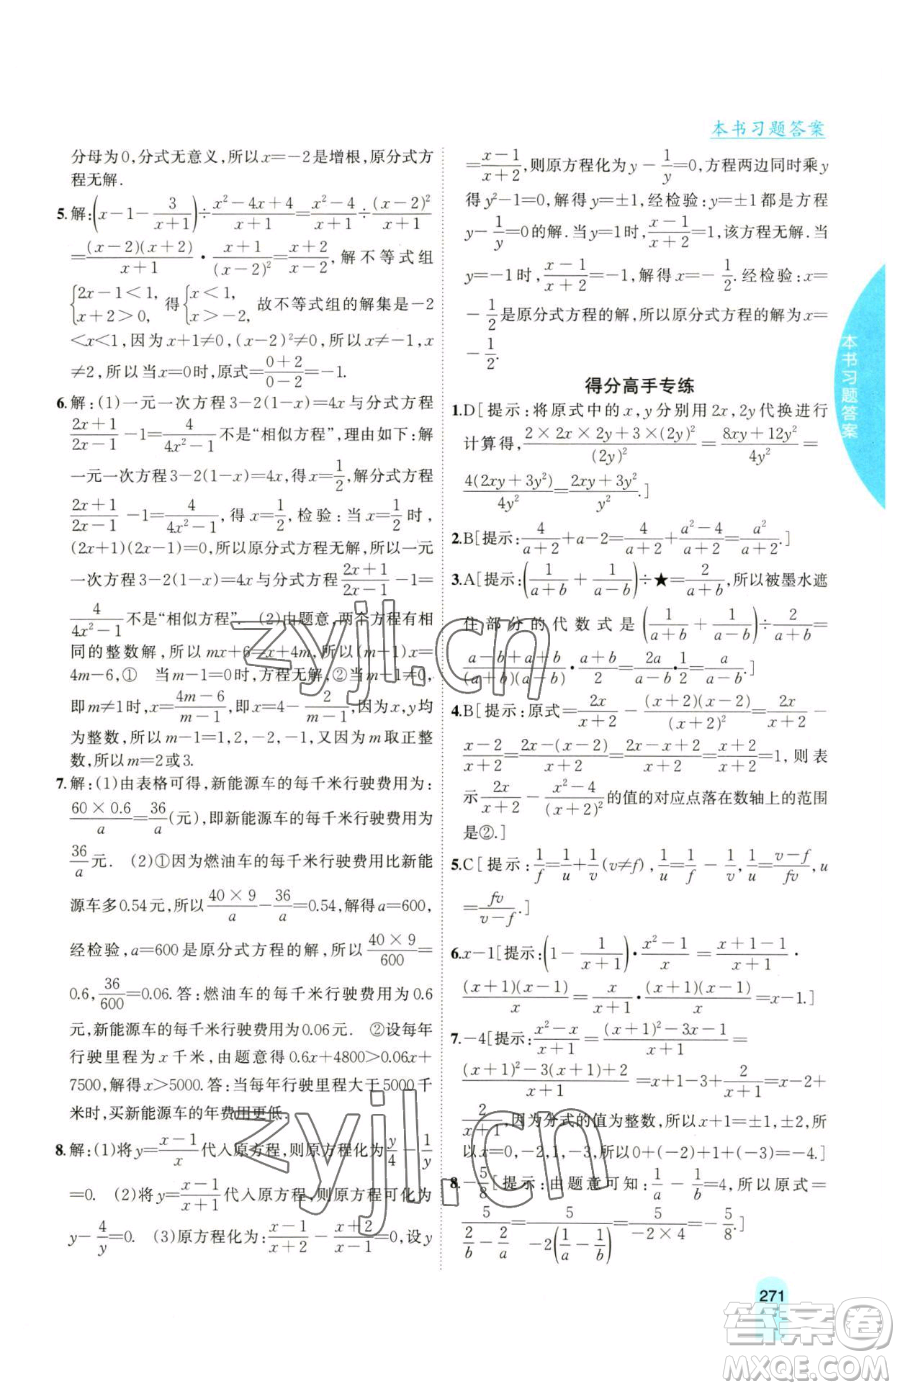 本书习题答案
分母为0,分式无意义,所以x=-2是增根,原分式方
程无解.
5.解:(x-1-3/(x+1))÷(x²-4x+4)/(x+1)=(x²-4)/(x+1)÷(x-2)²/(x+1)
=(x-2)(x+2)/(x+1)·(x+1)/(x-2)²=(x+2)/(x-2),解不等式组
{2x-1<1, x+2>0, 得{x<1, x>-2, 故不等式组的解集是-2
<x<1,因为x+1≠0,(x-2)²≠0,所以x≠-1且
x≠2,所以x=0,所以,原式=(0+2)/(0-2)=-1.
6.解:(1)一元一次方程3-2(1-x)=4x与分式方程
(2x+1)/(2x-1)-1=4/(4x²-1)不是“相似方程”,理由如下:解
一元一次方程3-2(1-x)=4x,得x=1/2,解分式方程
(2x+1)/(2x-1)-1=4/(4x²-1),得x=1/2,检验:当x=1/2时,
(2x+1)(2x-1)=0,所以原分式方程无解,所以一元
一次方程3-2(1-x)=4x与分式方程(2x+1)/(2x-1)-1=
4/(4x²-1)不是“相似方程”. (2)由题意,两个方程有相
同的整数解,所以mx+6=x+4m,所以(m-1)x=
4m-6,① 当m-1=0时,方程无解;②当m-1≠0,
即m≠1时,x=(4m-6)/(m-1),即x=4-2/(m-1),因为x,y均
为整数,所以m-1=1,2,-1,-2,又因为m取正整
数,所以m=2或3.
7.解:(1)由表格可得,新能源车的每千米行驶费用为:
(60×0.6)/a=36/a(元),即新能源车的每千米行驶费用为
36/a元. (2)①因为燃油车的每千米行驶费用比新能
源车多0.54元,所以(40×9)/a-36/a=0.54,解得a=600,
经检验,a=600是原分式方程的解,所以(40×9)/600=
0.6,36/600=0.06.答:燃油车的每千米行驶费用为0.6
元,新能源车的每千米行驶费用为0.06元. ②设每年
行驶里程为x千米,由题意得0.6x+4800>0.06x+
7500,解得x>5000.答:当每年行驶里程大于5000千
米时,买新能源车的年费用更低.
8.解:(1)将y=(x-1)/x代入原方程,则原方程化为y/4-1/y
=0. (2)将y=(x-1)/(x+1)代入原方程,则原方程可化为
y-4/y=0. (3)原方程化为:(x-1)/(x+2)-(x+2)/(x-1)=0,设y
=(x-1)/(x+2),则原方程化为y-1/y=0,方程两边同时乘y
得y²-1=0,解得y=±1,经检验:y=±1都是方程
y-1/y=0的解.当y=1时,(x-1)/(x+2)=1,该方程无解.当
y=-1时,(x-1)/(x+2)=-1,解得x=-1/2.经检验:x=
-1/2是原分式方程的解,所以原分式方程的解为x=
-1/2.
得分高手专练
1.D[提示:将原式中的x,y分别用2x,2y代换进行
计算得,(2×2x×2y+3×(2y)²)/(2y)²=(8xy+12y²)/4y²=
4(2xy+3y²)/4y²=(2xy+3y²)/y².]
2.B[提示:4/(a+2)+a-2=4/(a+2)+(a²-4)/(a+2)=a²/(a+2).]
3.A[提示:(1/(a+b)+1/(a+b))÷★=2/(a+b),所以被墨水遮
住部分的代数式是(1/(a+b)+1/(a-b))÷2/(a+b)=
(a-b+a+b)/((a+b)(a-b))·(a+b)/2=2a/(a-b)·1/2=a/(a-b).]
4.B[提示:原式=2x/(x+2)-(x+2)(x-2)/(x+2)²=2x/(x+2)-
(x-2)/(x+2)=(2x-(x-2))/(x+2)=(2x-x+2)/(x+2)=(x+2)/(x+2)=1,则表
示2x/(x+2)-(x²-4)/(x+2)²的值的对应点落在数轴上的范围
是②.]
5.C[提示:1/f=1/u+1/v(v≠f),1/u=1/f-1/v,1/u=(v-f)/fv,u
=fv/(v-f).]
6.x-1[提示:(1-1/(x+1))·(x²-1)/x=(x+1-1)/(x+1)·
(x+1)(x-1)/x=x/(x+1)·(x+1)(x-1)/x=x-1.]
7.-4[提示:(x²-x)/(x+1)=((x+1)²-3x-1)/(x+1)=
((x+1)²-3(x+1)+2)/(x+1)=x+1-3+2/(x+1)=x-2+
2/(x+1),因为分式的值为整数,所以x+1=±1,±2,所
以x=0,-2,1,-3,所以0+(-2)+1+(-3)=-4.]
8.-5/8[提示:由题意可知:1/a-1/b=4,所以原式=
5/(2/b-2/a)=5/(-2(1/a-1/b))=5/(-2×4)=-5/8.]
本书习题答案
271
zyjl.cn
zyjl.cn
答案卷
MXQE.COM